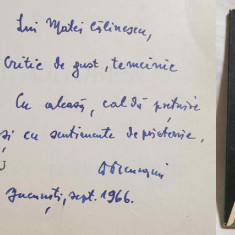 Lui Matei Călinescu,
critic de gust, temeinic
Cu aleasă, caldă prețuire
și cu sentimente de prietenie,
București, sept. 1966.